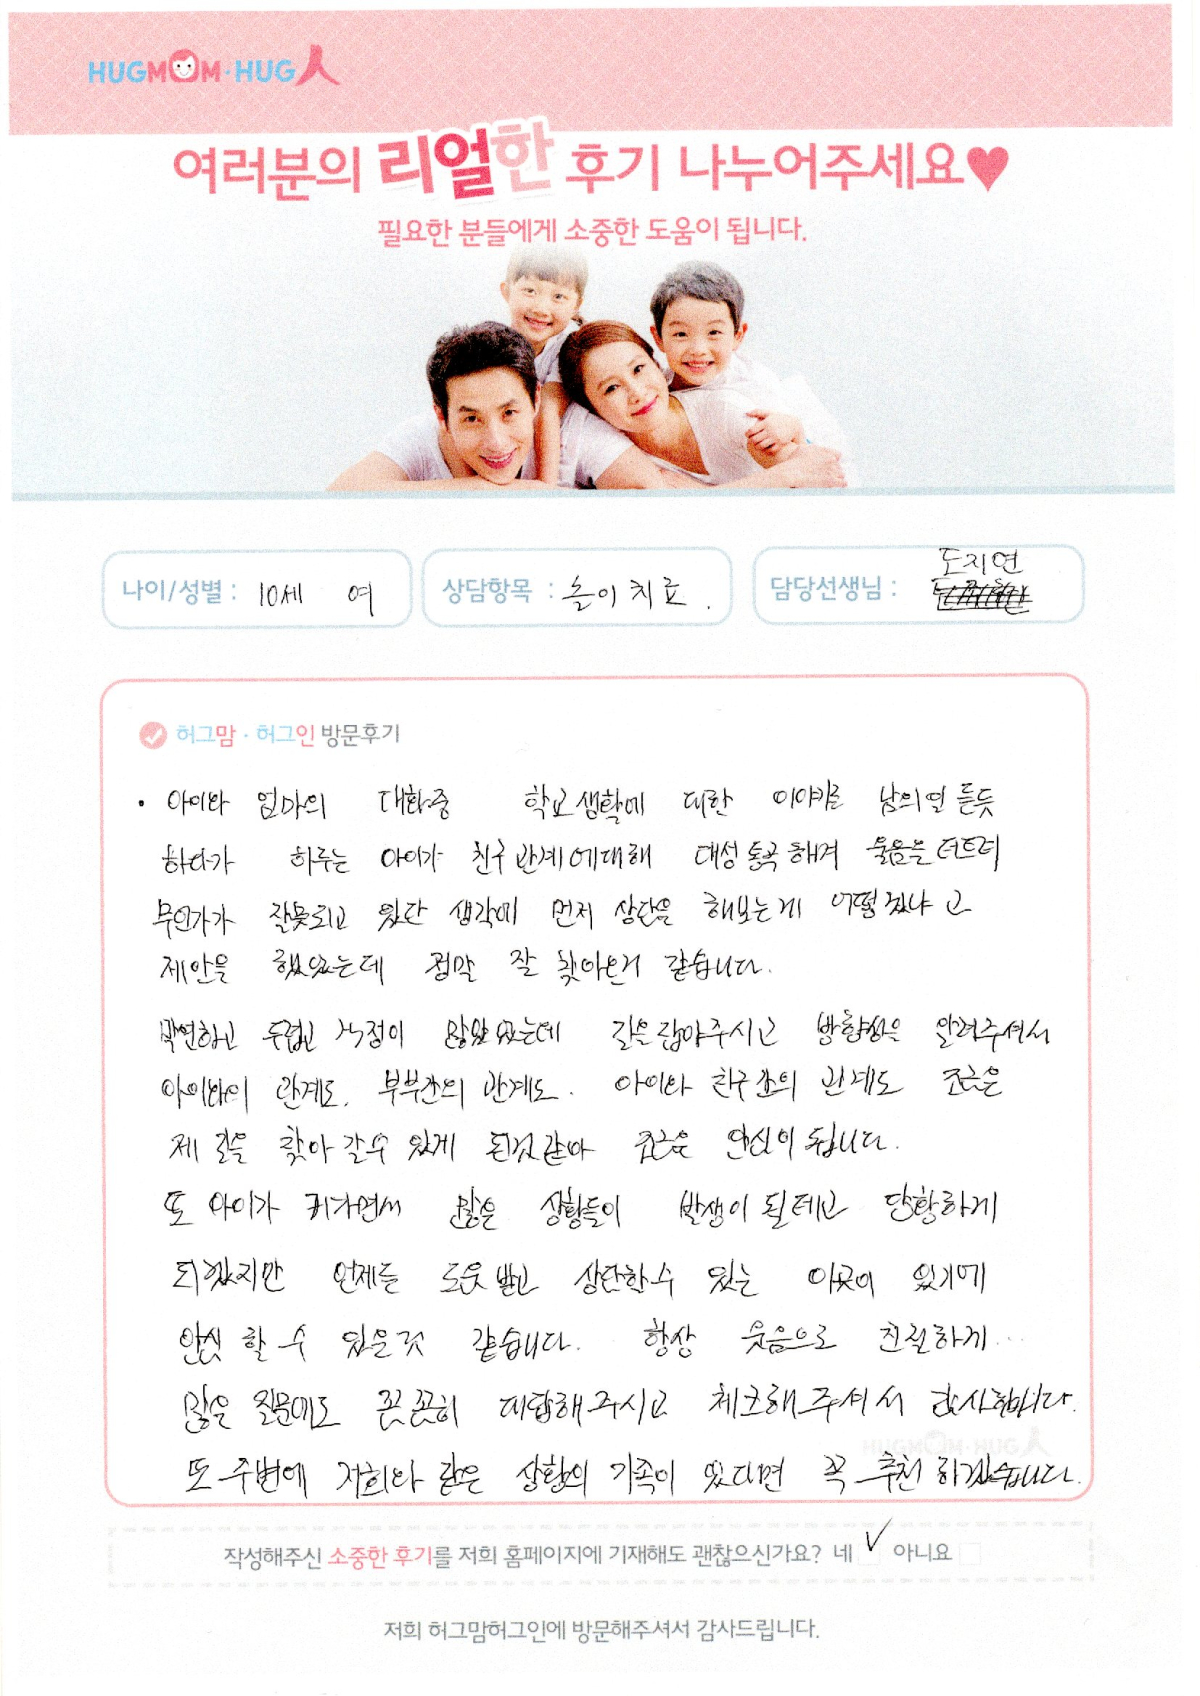 HUGMOM·HUG人
여러분의 리얼한 후기 나누어주세요♥
필요한 분들에게 소중한 도움이 됩니다.
나이/성별 : 10세 여
상담항목 : 놀이치료.
담당선생님 : 도지연
허그맘·허그인 방문후기
· 아이와 엄마의 대화중 학교생활에 대한 이야기를 남의일 듣듯
하다가 하루는 아이가 친구관계에대해 대성통곡하며 울음을 터트려
무언가가 잘못되고 있단 생각에 먼저 상담을 해보는게 어떻겠냐고
제안을 했었는데 정말 잘 찾아온거 같습니다.
막연하고 두렵고 걱정이 많았었는데 길을잡아주시고 방향성을 알려주셔서
아이와의 관계도, 부부간의 관계도. 아이와 친구간의 관계도 조금은
제 길을 찾아갈수 있게 된것같아 조금은 안심이 됩니다.
또 아이가 커가면서 많은 상황들이 발생이 될테고 당황하게
되겠지만 언제든 도움받고 상담할수 있는 이곳이 있기에
안심 할 수 있을것 같습니다. 항상 웃음으로 친절하게...
많은 질문에도 꼰꼰히 대답해주시고 체크해주셔서 감사합니다.
또 주변에 저희와 같은 상황의 가족이 있다면 꼭 추천하겠습니다.
HUGMOM·HUG人
작성해주신 소중한 후기를 저희 홈페이지에 기재해도 괜찮으신가요? 네 ✓ 아니요
저희 허그맘허그인에 방문해주셔서 감사드립니다.